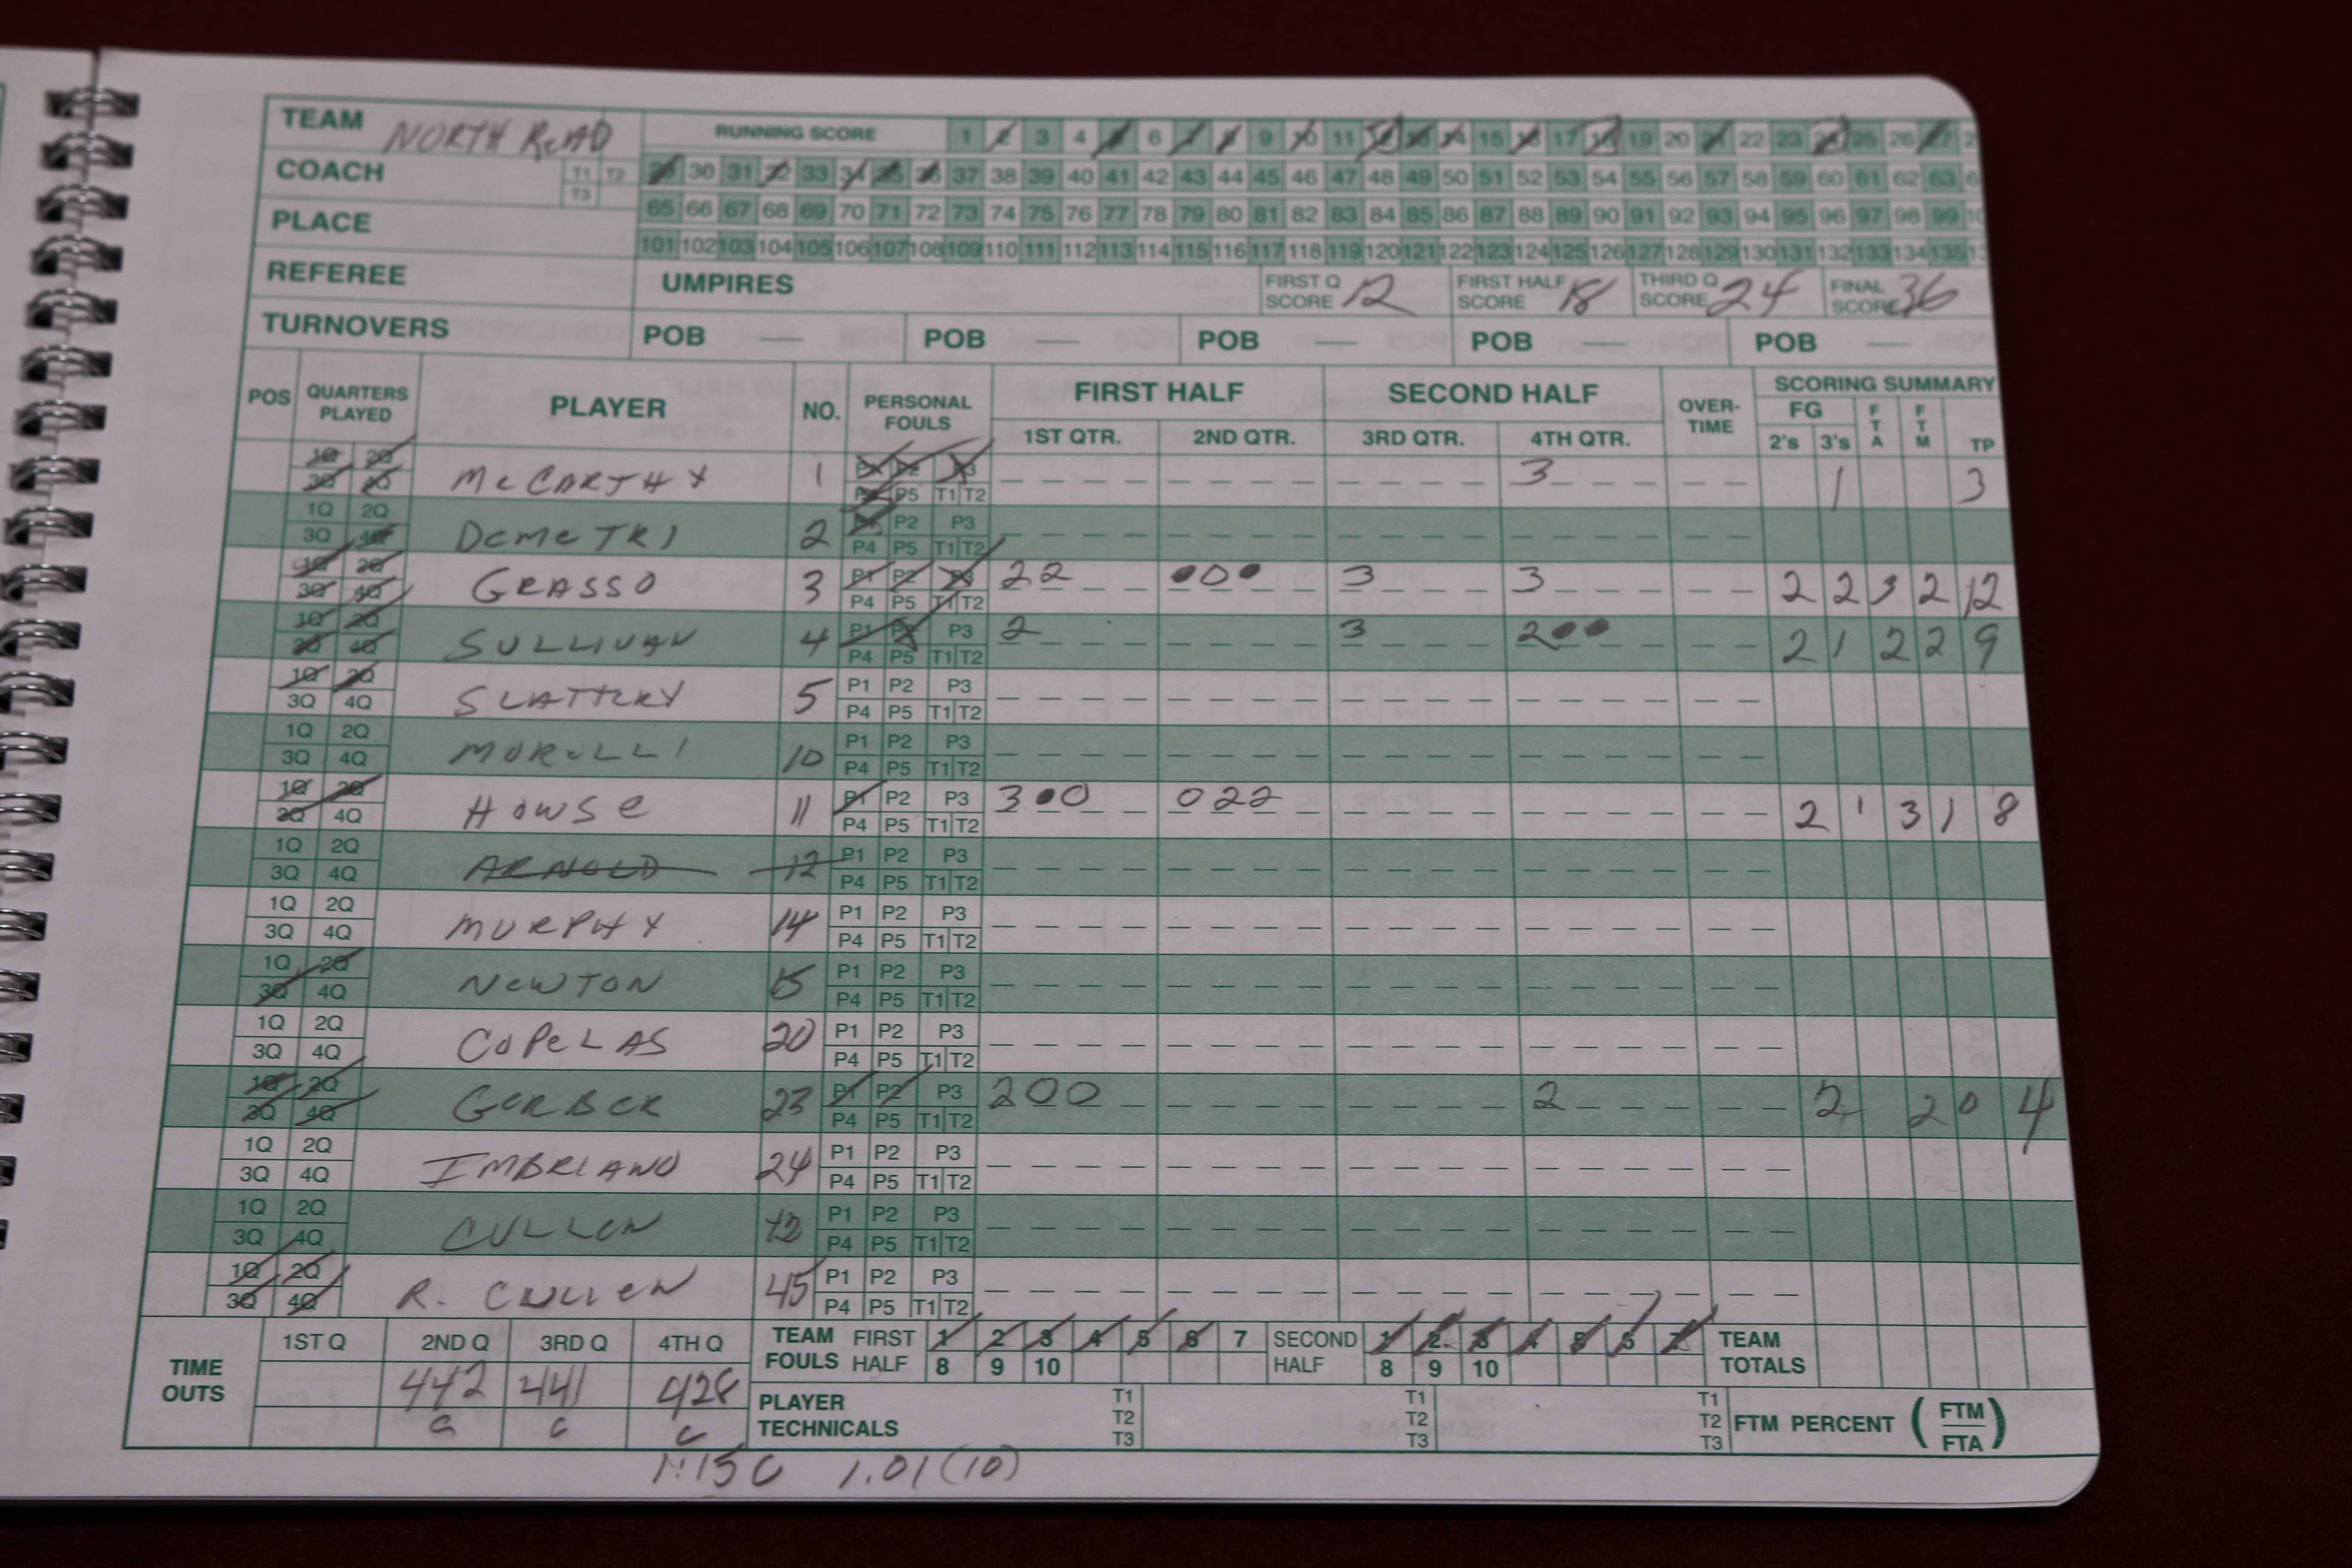 TEAM NORTH READ RUNNING SCORE 1 2 3 4 5 6 7 8 9 10 11 12 13 14 15 16 17 18 19 20 21 22 23 24 25 26 27
COACH T1 T2 T3 29 30 31 32 33 34 35 36 37 38 39 40 41 42 43 44 45 46 47 48 49 50 51 52 53 54 55 56 57 58 59 60 61 62 63
PLACE 65 66 67 68 69 70 71 72 73 74 75 76 77 78 79 80 81 82 83 84 85 86 87 88 89 90 91 92 93 94 95 96 97 98 99
101 102 103 104 105 106 107 108 109 110 111 112 113 114 115 116 117 118 119 120 121 122 123 124 125 126 127 128 129 130 131 132 133 134 135
REFEREE UMPIRES FIRST Q SCORE 12 FIRST HALF SCORE 18 THIRD Q SCORE 24 FINAL SCORE 36
TURNOVERS POB — POB — POB — POB — POB —
POS QUARTERS PLAYED PLAYER NO. PERSONAL FOULS FIRST HALF SECOND HALF OVER-TIME SCORING SUMMARY
1ST QTR. 2ND QTR. 3RD QTR. 4TH QTR. FG 2's 3's FTA FTM TP
1Q 2Q 3Q 4Q McCARTHY 1 P1 P2 P3 P4 P5 T1 T2 3 1 3
1Q 2Q 3Q 4Q DemeTRI 2 P1 P2 P3 P4 P5 T1 T2
1Q 2Q 3Q 4Q GRASSO 3 P1 P2 P3 P4 P5 T1 T2 22 ●0● 3 3 2 2 3 2 12
1Q 2Q 3Q 4Q SULLIVAN 4 P1 P2 P3 P4 P5 T1 T2 2 3 2●● 2 1 2 2 9
1Q 2Q 3Q 4Q SLATTERY 5 P1 P2 P3 P4 P5 T1 T2
1Q 2Q 3Q 4Q MORELLI 10 P1 P2 P3 P4 P5 T1 T2
1Q 2Q 3Q 4Q HOWSe 11 P1 P2 P3 P4 P5 T1 T2 3●0 022 2 1 3 1 8
1Q 2Q 3Q 4Q ARNOLD 12 P1 P2 P3 P4 P5 T1 T2
1Q 2Q 3Q 4Q MURPHY 14 P1 P2 P3 P4 P5 T1 T2
1Q 2Q 3Q 4Q NeWTON 15 P1 P2 P3 P4 P5 T1 T2
1Q 2Q 3Q 4Q COPeLAS 20 P1 P2 P3 P4 P5 T1 T2
1Q 2Q 3Q 4Q GERBER 23 P1 P2 P3 P4 P5 T1 T2 200 2 2 2 0 4
1Q 2Q 3Q 4Q IMBRIANO 24 P1 P2 P3 P4 P5 T1 T2
1Q 2Q 3Q 4Q CULLEN P1 P2 P3 P4 P5 T1 T2
1Q 2Q 3Q 4Q R. CULLEN 45 P1 P2 P3 P4 P5 T1 T2
TIME OUTS 1ST Q 2ND Q 3RD Q 4TH Q TEAM FOULS FIRST HALF 1 2 3 4 5 6 7 8 9 10 SECOND HALF 1 2 3 4 5 6 7 8 9 10 TEAM TOTALS
442 441 428 PLAYER TECHNICALS T1 T2 T3 T1 T2 T3 T1 T2 T3 FTM PERCENT (FTM FTA)
C C C
1:15 C 1.01 (10)